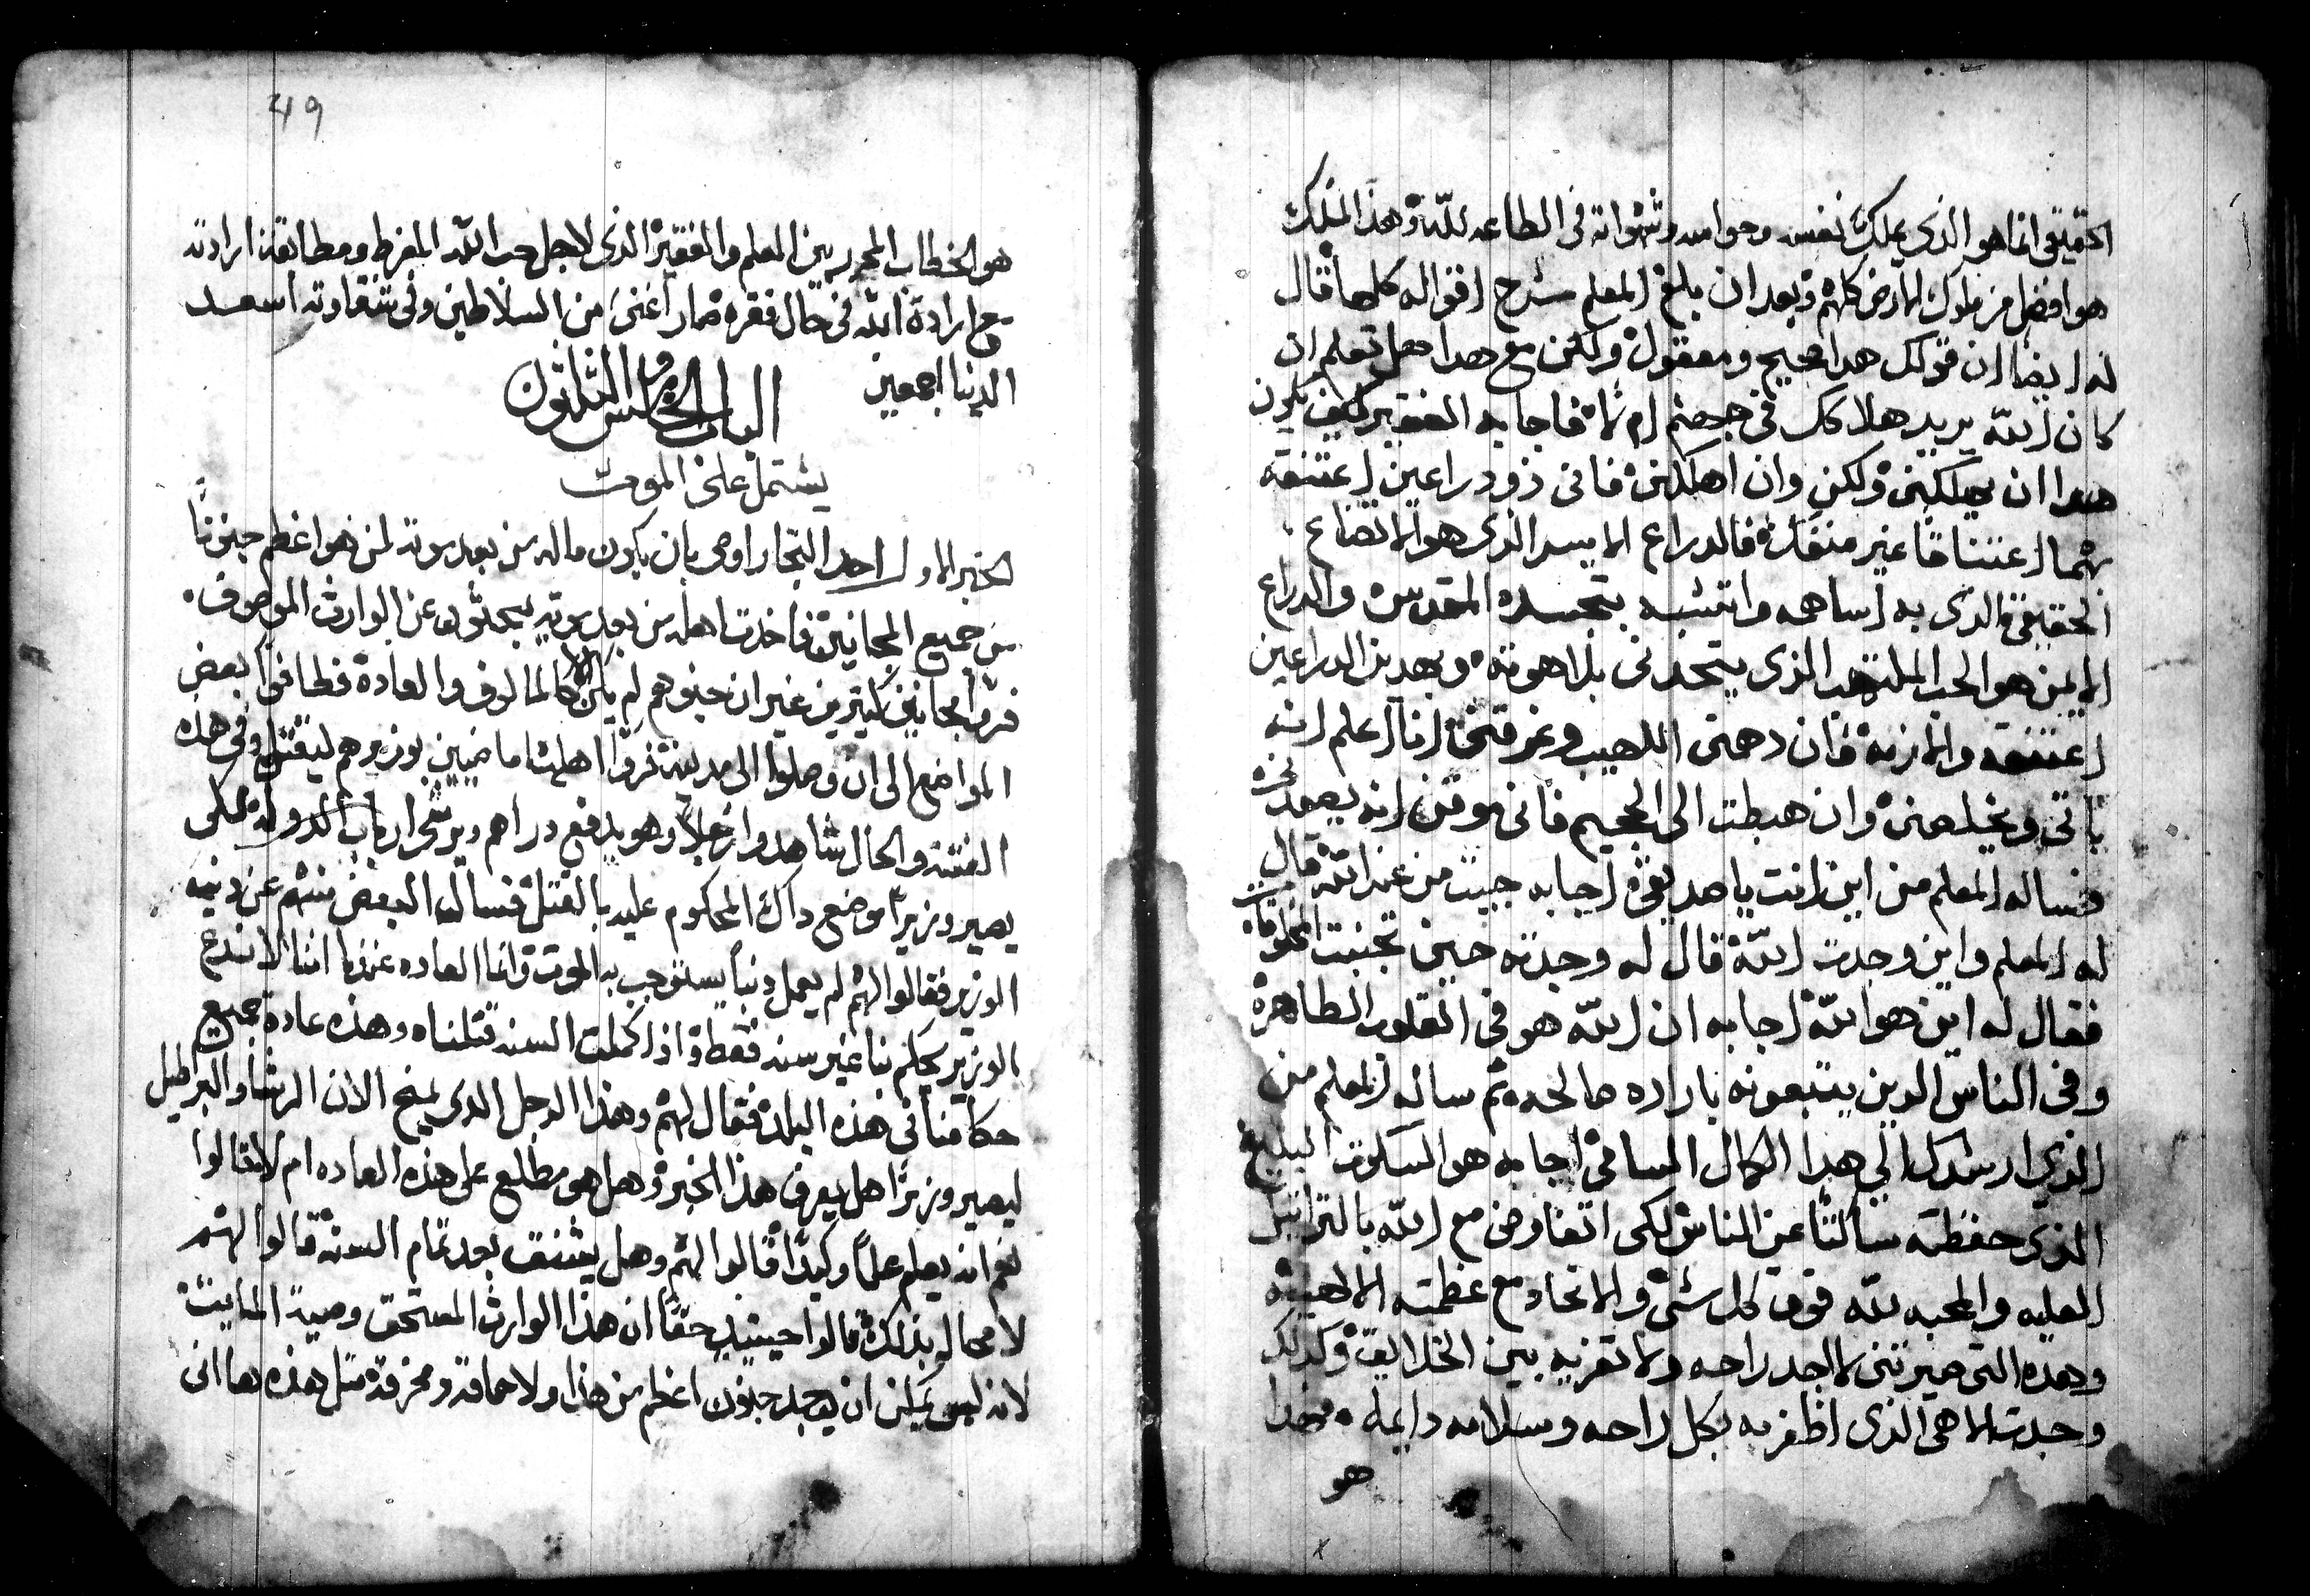 الحقيقى انما هو الذى يملك نفسه وحواسه وشهواته فى الطاعه لله وهذا الملك
هو افضل من ملوك الارض كلهم وبعد ان بلغ المعلم شرح اقواله كلها قال
له ايضا ان قولك هدا صحيح ومعقول ولكن مع هدا هل تعلم ان
كان الله يريد هلاكك فى جهنم ام لا فاجابه الفقير كيف يكون
هدا ان يهلكنى ولكن وان اهلكنى فانى ذو دراعين اعتنقه
بهما اعتناقا غير منفك فالدراع الايسر الذى هو الاتضاع
الحقيقى الدى به اساهمه واتشبه بتجسده المقدس والدراع
الايمن هو الحب الملتهب الذى يتحدنى بلاهوته وبهدين الدراعين
اعتنقه والازمه فان دهمنى اللهيب وغرقنى انا اعلم انه
ياتى ويخلصنى وان هبطت الى الجحيم فانى موقن انه يصعدنى
فساله المعلم من اين انت يا صديقى اجابه جيت من عند الله قال
له المعلم واين وجدت الله قال له وجدته حين تجنبت المخلوقات
فقال له اين هو الله اجابه ان الله هو فى القلوب الطاهره
وفى الناس الدين يتبعونه باراده صالحه ثم ساله المعلم من
الذى ارشدك الي هدا الكمال السامى اجابه هو السكوت البليغ
الذى حفظته ساكتا عن الناس لكى اتفاوض مع الله بالتراتيل
العليه والمحبه لله فوق كل شى والاتحاد مع عظمته الالهيه
وهده التى صيرتنى لا اجد راحه ولا تعزيه بين الخلايق وكدلك
وجدت الاهى الذى اظفر به بكل راحه وسلامه دايمه فهدا
هو
49
هو الخطاب المحرر بين المعلم والفقير الذى لاجل حب الله المفرط ومطابقة ارادته
مع ارادة الله فى حال فقره صار اغنى من السلاطين وفى شقاوته اسعد
الدنيا اجمعين
الباب الخامس والثلاثون
يشتمل على الموت
الخبر الاول احد التجار اوصى بان يكون ماله من بعد موته لمن هو اعظم جنونا
من جميع المجانين فاخدت اهله من بعد موته يبحثون عن الوارث الموصوف
فراوا مجانين كثيرين غير ان جنونهم لم يكن الا كالمالوف والعادة فطافوا بعض
المواضع الى ان وصلوا الى مدينة فراوا اهلها ماضيين بوزيرهم ليقتل وفى هذه
الفتنه والحال شاهدوا رجلا وهو يدفع دراهم ويرشى ارباب الدوله لكى
يصير وزيرا موضع داك المحكوم عليه بالقتل فساله البعض منهم عن دنب
الوزير فقالوا لهم لم يعمل دنبا يستوجب به الموت وانما العاده عندنا اننا لا ندع
الوزير يحكم بنا غير سنه فقط واذا كملت السنه قتلناه وهذه عادة جميع
حكامنا فى هذه البلدة فقال لهم وهذا الرجل الدى يمنح الان الرشا والبراطيل
ليصير وزيرا هل يعرف هذا الخبر وهل هو مطلع على هذه العاده ام لا فقالوا
نعم انه يعلم علما وكيدا قالوا لهم وهل يشنق بعد تمام السنه قالوا لهم
لا محاله بذلك قالوا حينيد حقا ان هذا الوارث المستحق وصية المايت
لانه ليس يمكن ان يوجد جنون اعظم من هذا ولا حماقة ومخرقة مثل هذه ها انى